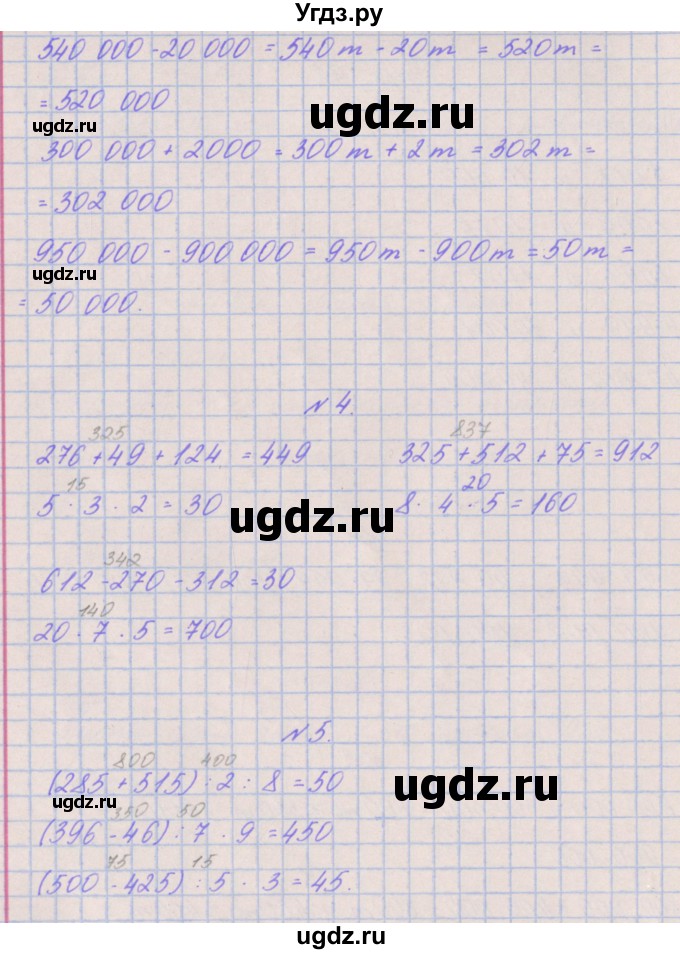 Угдз.ру
540 000 - 20 000 = 540 т - 20 т = 520 т =
= 520 000
ugdz.ru
ugdz.ru
300 000 + 2000 = 300 т + 2 т = 302 т =
= 302 000
950 000 - 900 000 = 950 т - 900 т = 50 т =
ugdz.ru
= 50 000.
№ 4.
325
276 + 49 + 124 = 449
837
325 + 512 + 75 = 912
15
5 · 3 · 2 = 30
20
8 · 4 · 5 = 160
ugdz.ru
342
612 - 270 - 312 = 30
140
20 · 7 · 5 = 700
№ 5.
800 400
(285 + 515) : 2 : 8 = 50
ugdz.ru
ugdz.ru
350 50
(396 - 46) : 7 · 9 = 450
75 15
(500 - 425) : 5 · 3 = 45.
ugdz.ru